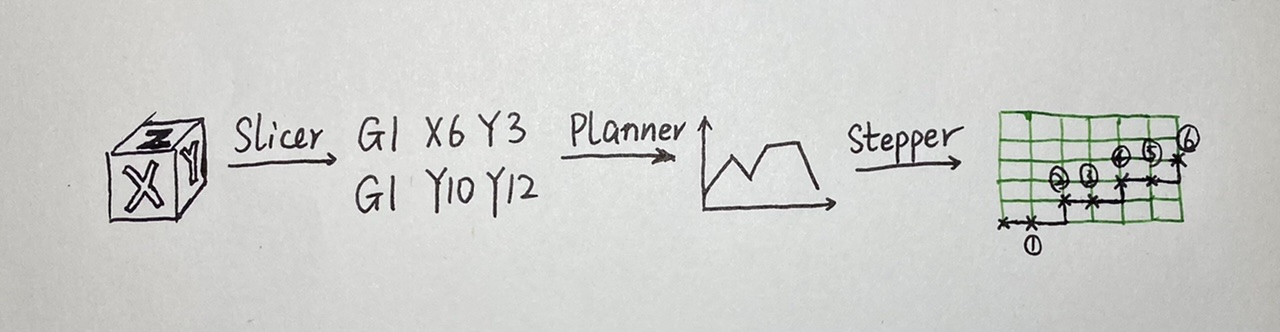 Z
X
Y
Slicer
G1 X6 Y3
G1 Y10 Y12
Planner
Stepper
①
②
③
④
⑤
⑥